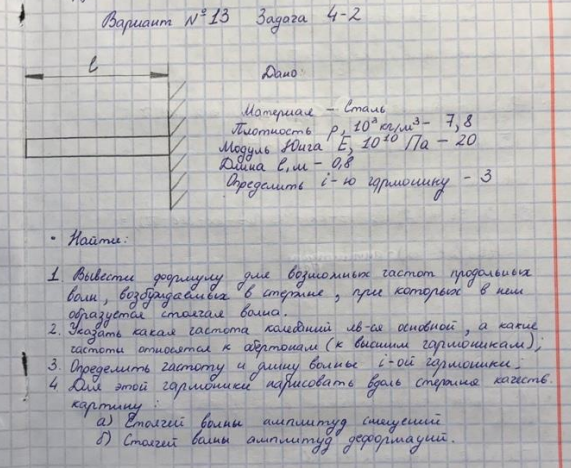 Вариант №13 Задача 4-2
l
Дано:
Материал – Сталь
Плотность ρ, 10³ кг/м³ – 7,8
Модуль Юнга E, 10¹⁰ Па – 20
Длина l, м – 0,8
Определить i-ю гармонику – 3
• Найти:
1. Вывести формулу для возможных частот продольных
волн, возбуждаемых в стержне, при которых в нём
образуется стоячая волна.
2. Указать какая частота колебаний яв-ся основной, а какие
частоты относятся к обертонам (к высшим гармоникам);
3. Определить частоту и длину волны i-ой гармоники;
4 Для этой гармоники нарисовать вдоль стержня качеств.
картину:
а) Стоячей волны амплитуд смещений
б) Стоячей волны амплитуд деформаций.